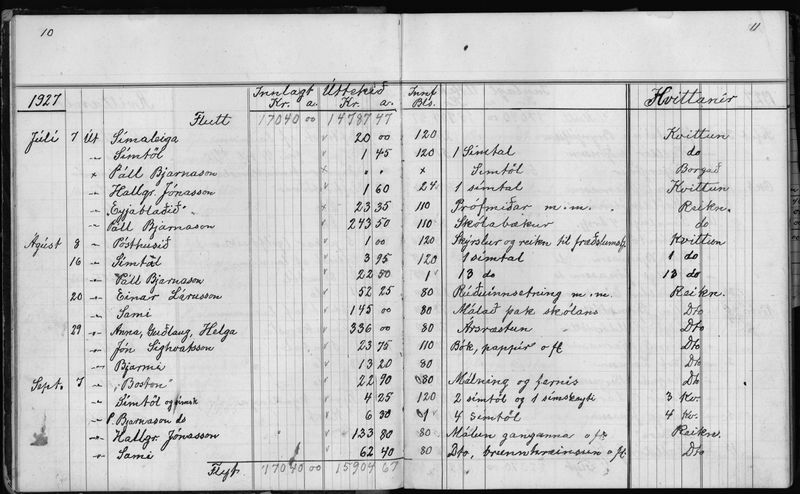 10
11
1927 Innlagt Úttekið Innf. Kvittanir
Kr. a. Kr. a. Bls.
Flutt 17040 00 14787 47
Júlí 7 Út Símaleiga 20 00 120 Kvittun
" Símtöl 1 45 120 1 Símtal do
x Páll Bjarnason x " " x Símtöl Borgað
" Hallgr. Jónasson 1 60 24 1 símtal Kvittun
" "Eyjablaðið" 23 35 110 Prófmiðar m. m. Reikn.
" Páll Bjarnason 243 50 110 Skólabækur do
Ágúst 8 " Pósthúsið 1 00 120 Skýrslur og reikn til fræðslumsj. Kvittun
16 " Símtöl 3 95 120 1 símtal 1 do
" Páll Bjarnason 22 50 1 13 do 13 do
20 " Einar Lárusson 52 25 80 Rúðuinnsetning m. m. Reikn.
" Sami 145 00 80 Málað þak skólans Dto
29 " Anna, Guðlaug, Helga 336 00 80 Ársræstun Dto
" Jón Sighvatsson 23 75 110 Bók, pappír o fl Dto
" Bjarmi 13 20 80 Dto
Sept. 7 " "Boston" 22 90 80 Málning og fernis Dto
" Símtöl og 4 25 120 2 símtöl og 1 símskeyti 3 Kv.
" P. Bjarnason do 6 30 1 4 símtöl 4 Kv.
" Hallgr. Jónasson 123 80 80 Málun ganganna o fl. Reikn.
" Sami 62 40 80 Dto, brunnhreinsun o fl. Dto
Flyt. 17040 00 15904 67